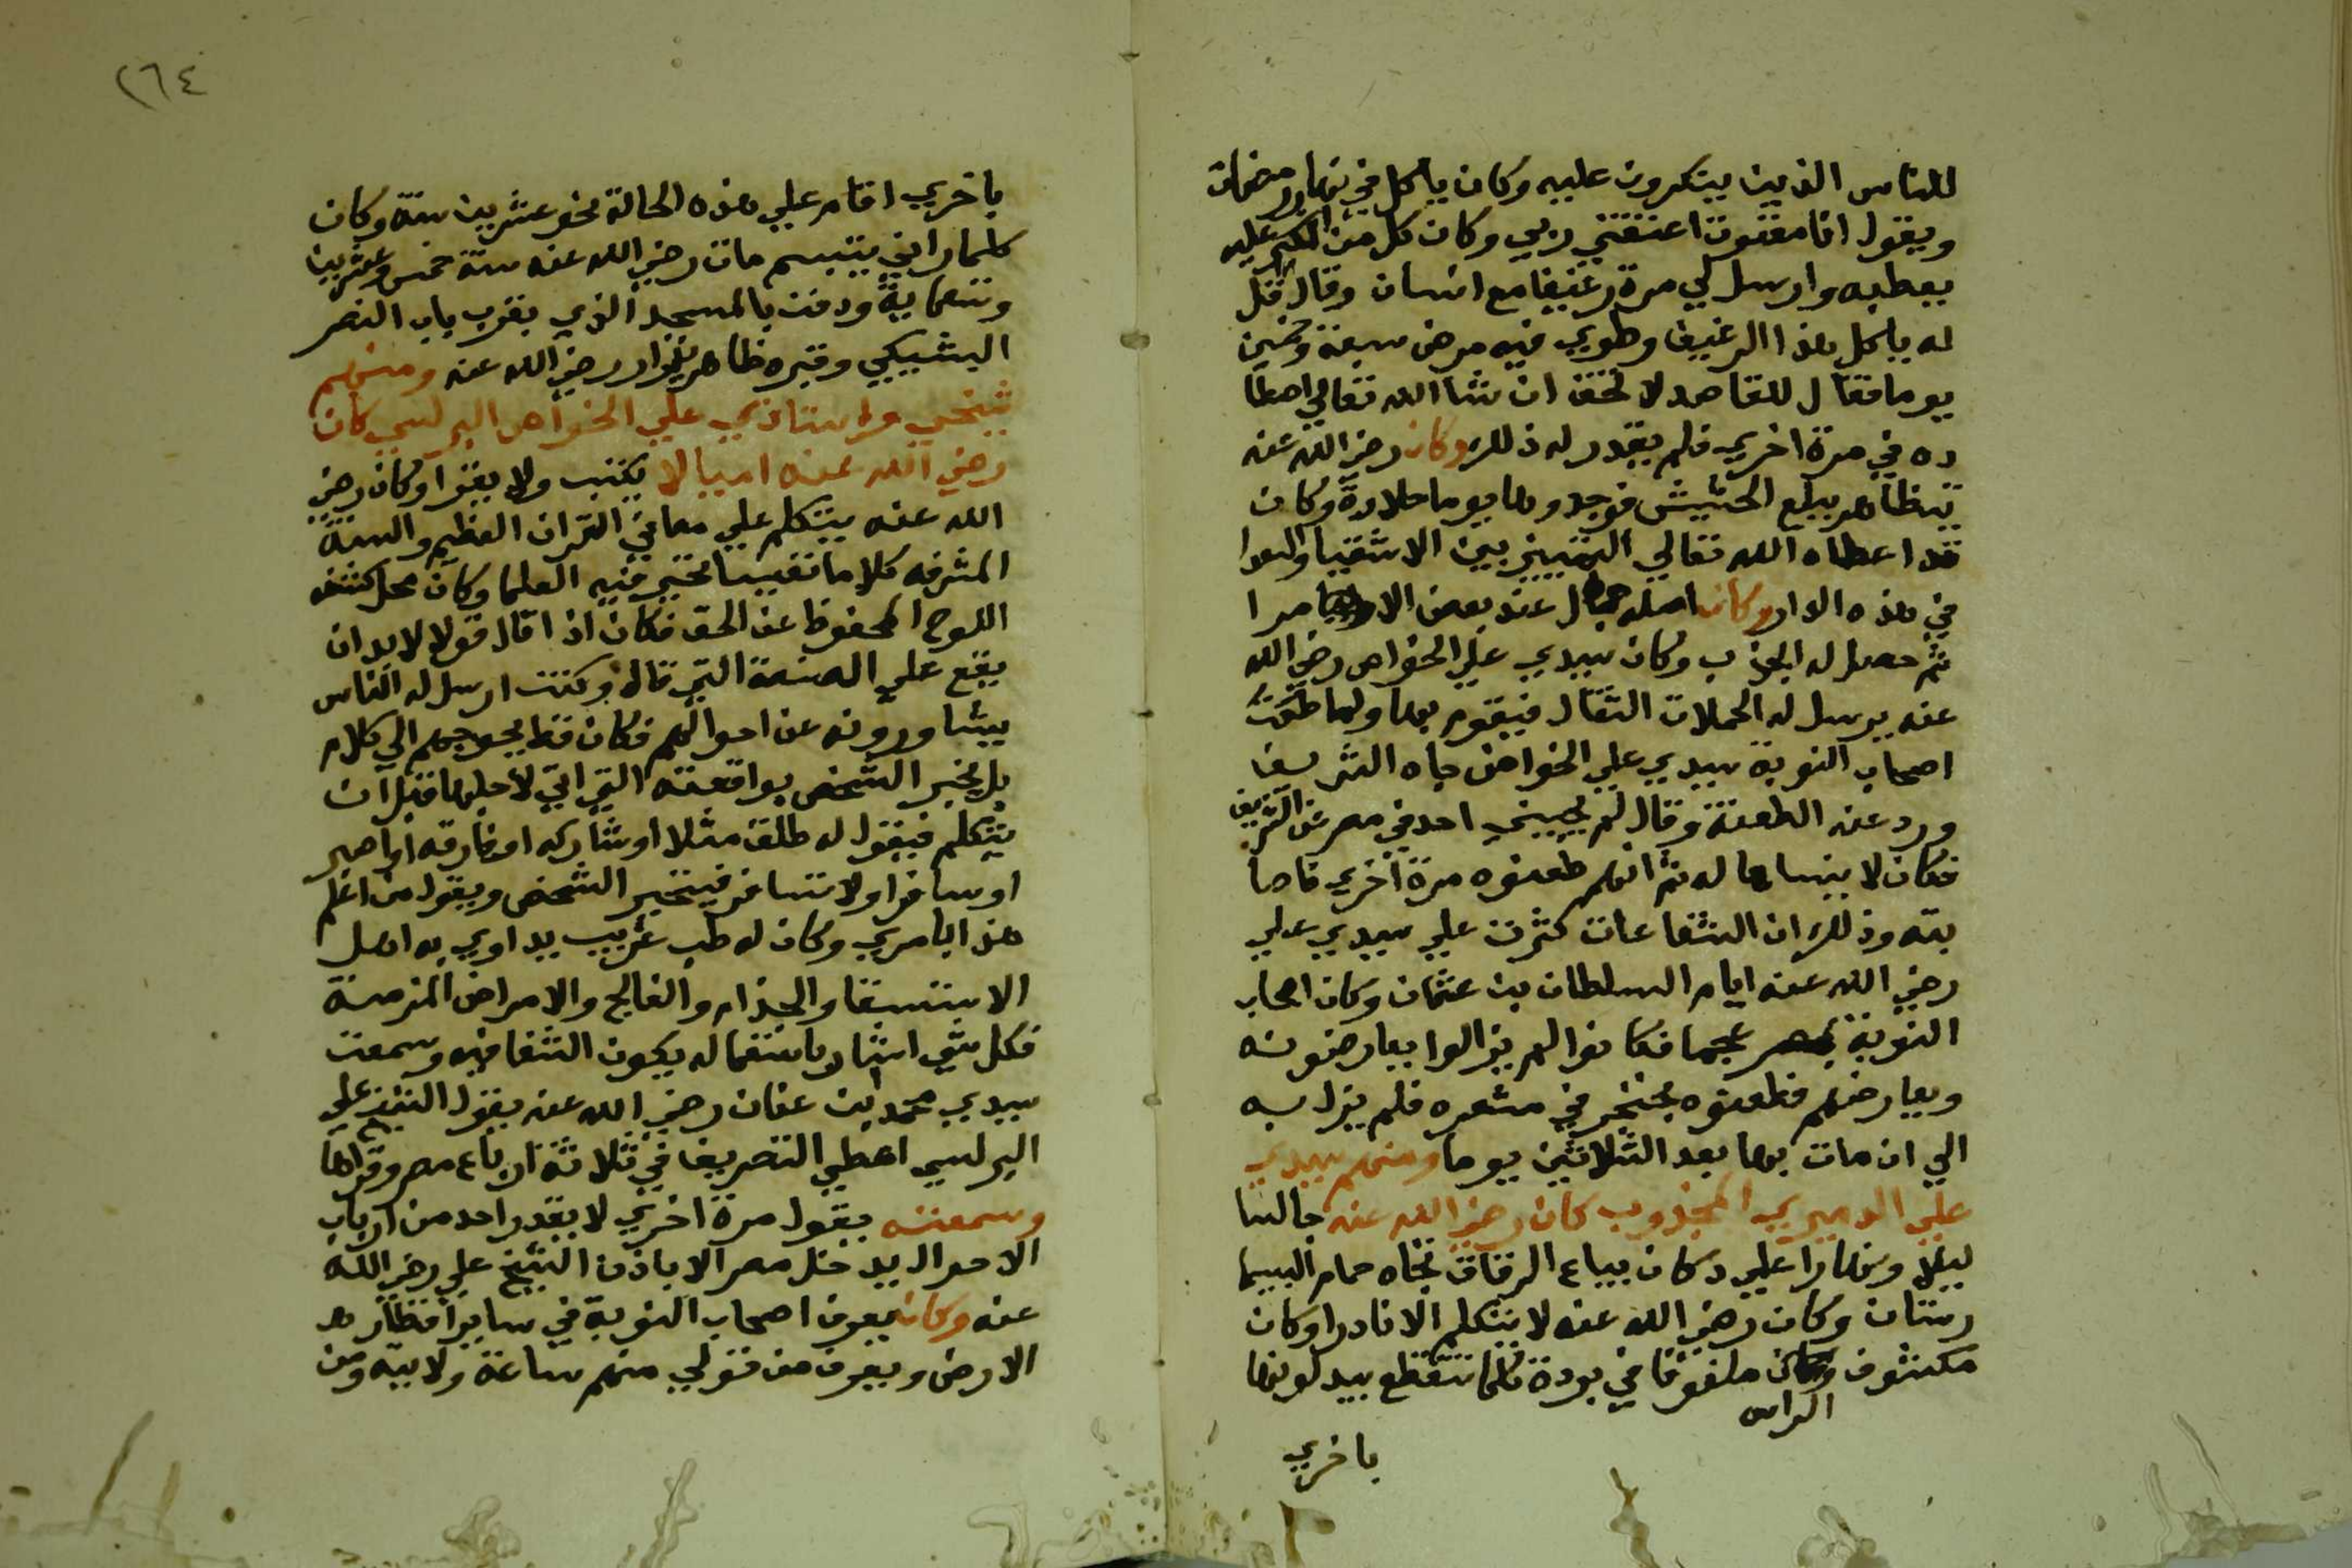 للناس الذين ينكرون عليه وكان ياكل في نهار رمضان
ويقول انا معتوق اعتقني ربي وكان كل من انكر عليه
يعطبه وارسل لي مرة رغيفا مع انسان وقال قل
له ياكل هذا الرغيف وطوي فيه مرض سبعة وخمسين
يوما فقال للقاصد لا تخف ان شا الله تعالي اصطا
ده في مرة اخري فلم يقدر له ذلك وكان رضي الله عنه
يتظاهر ببلع الحشيش فوجدوها يوما حلاوة وكان
قد اعطاه الله تعالي التمييز بين الاشقيا والسعدا
في هذه الدار وكان اصله جمال عند بعض الامرا
ثم حصل له الجذب وكان سيدي علي الخواص رضي الله
عنه يرسل له الحملات الثقال فيقوم بها ولما طعنت
اصحاب النوبة سيدي علي الخواص جاه الشريف
ورد عنه الطعنة وقال لم يجيني احد في مصر غير الشريف
فكان لا ينساها له ثم انهم طعنوه مرة اخري فاصا
بته وذلك ان الشفاعات كثرت علي سيدي علي
رضي الله عنه ايام السلطان بن عثمان وكان اصحاب
النوبة بمصر عجما فكانوا لم يزالوا يعارضونه
ويعارضهم فطعنوه بخنجر في مشعره فلم يزل به
الي ان مات بها بعد الثلاثين يوما ومنهم سيدي
علي الدميري المجذوب كان رضي الله عنه جالسا
ليلا ونهارا علي دكان بياع الرقاق تجاه حمام البيما
رستان وكان رضي الله عنه لا يتكلم الا نادرا وكان
مكشوف الراس ملفوفا في بردة كلما تتقطع يبدلونها
باخري
٢٦٤
باخري اقام علي هذه الحالة نحو عشرين سنة وكان
كلما راني يتبسم مات رضي الله عنه سنة خمس وعشرين
وتسعماية ودفن بالمسجد الذي بقرب باب النصر
البشبيكي وقبره ظاهر يزار رضي الله عنه ومنهم
شيخي واستاذي علي الخواص البرلسي كان
رضي الله عنه اميا لا يكتب ولا يقرا وكان رضي
الله عنه يتكلم علي معاني القران العظيم والسنة
المشرفه كلاما نفيسا تحير فيه العلما وكان محل كشفه
اللوح المحفوظ عن الحق فكان اذا قال قولا لا بد ان
يقع علي الصفة التي قال وكنت ارسل له الناس
يشاورونه عن احوالهم فكان قط يحوجهم الي كلام
بل يخبر الشخص بواقعته التي اتي لاجلها قبل ان
يتكلم فيقول له طلق مثلا او شاركه او فارقه او اصبر
او سافر او لا تسافر فيتحير الشخص ويقول من اعلم
هذا بامري وكان له طب غريب يداوي به اهل
الاستسقا والجذام والفالج والامراض المزمنة
فكل شي اشار باستعماله يكون الشفا فيه وسمعت
سيدي محمد بن عنان رضي الله عنه يقول الشيخ علي
البرلسي اعطي التصريف في ثلاثة ارباع مصر وقراها
وسمعته يقول مرة اخري لا يقدر احد من ارباب
الاحوال يدخل مصر الا باذن الشيخ علي رضي الله
عنه وكان يعرف اصحاب النوبة في ساير اقطار
الارض ويعرف من تولي منهم ساعة ولايته ومن